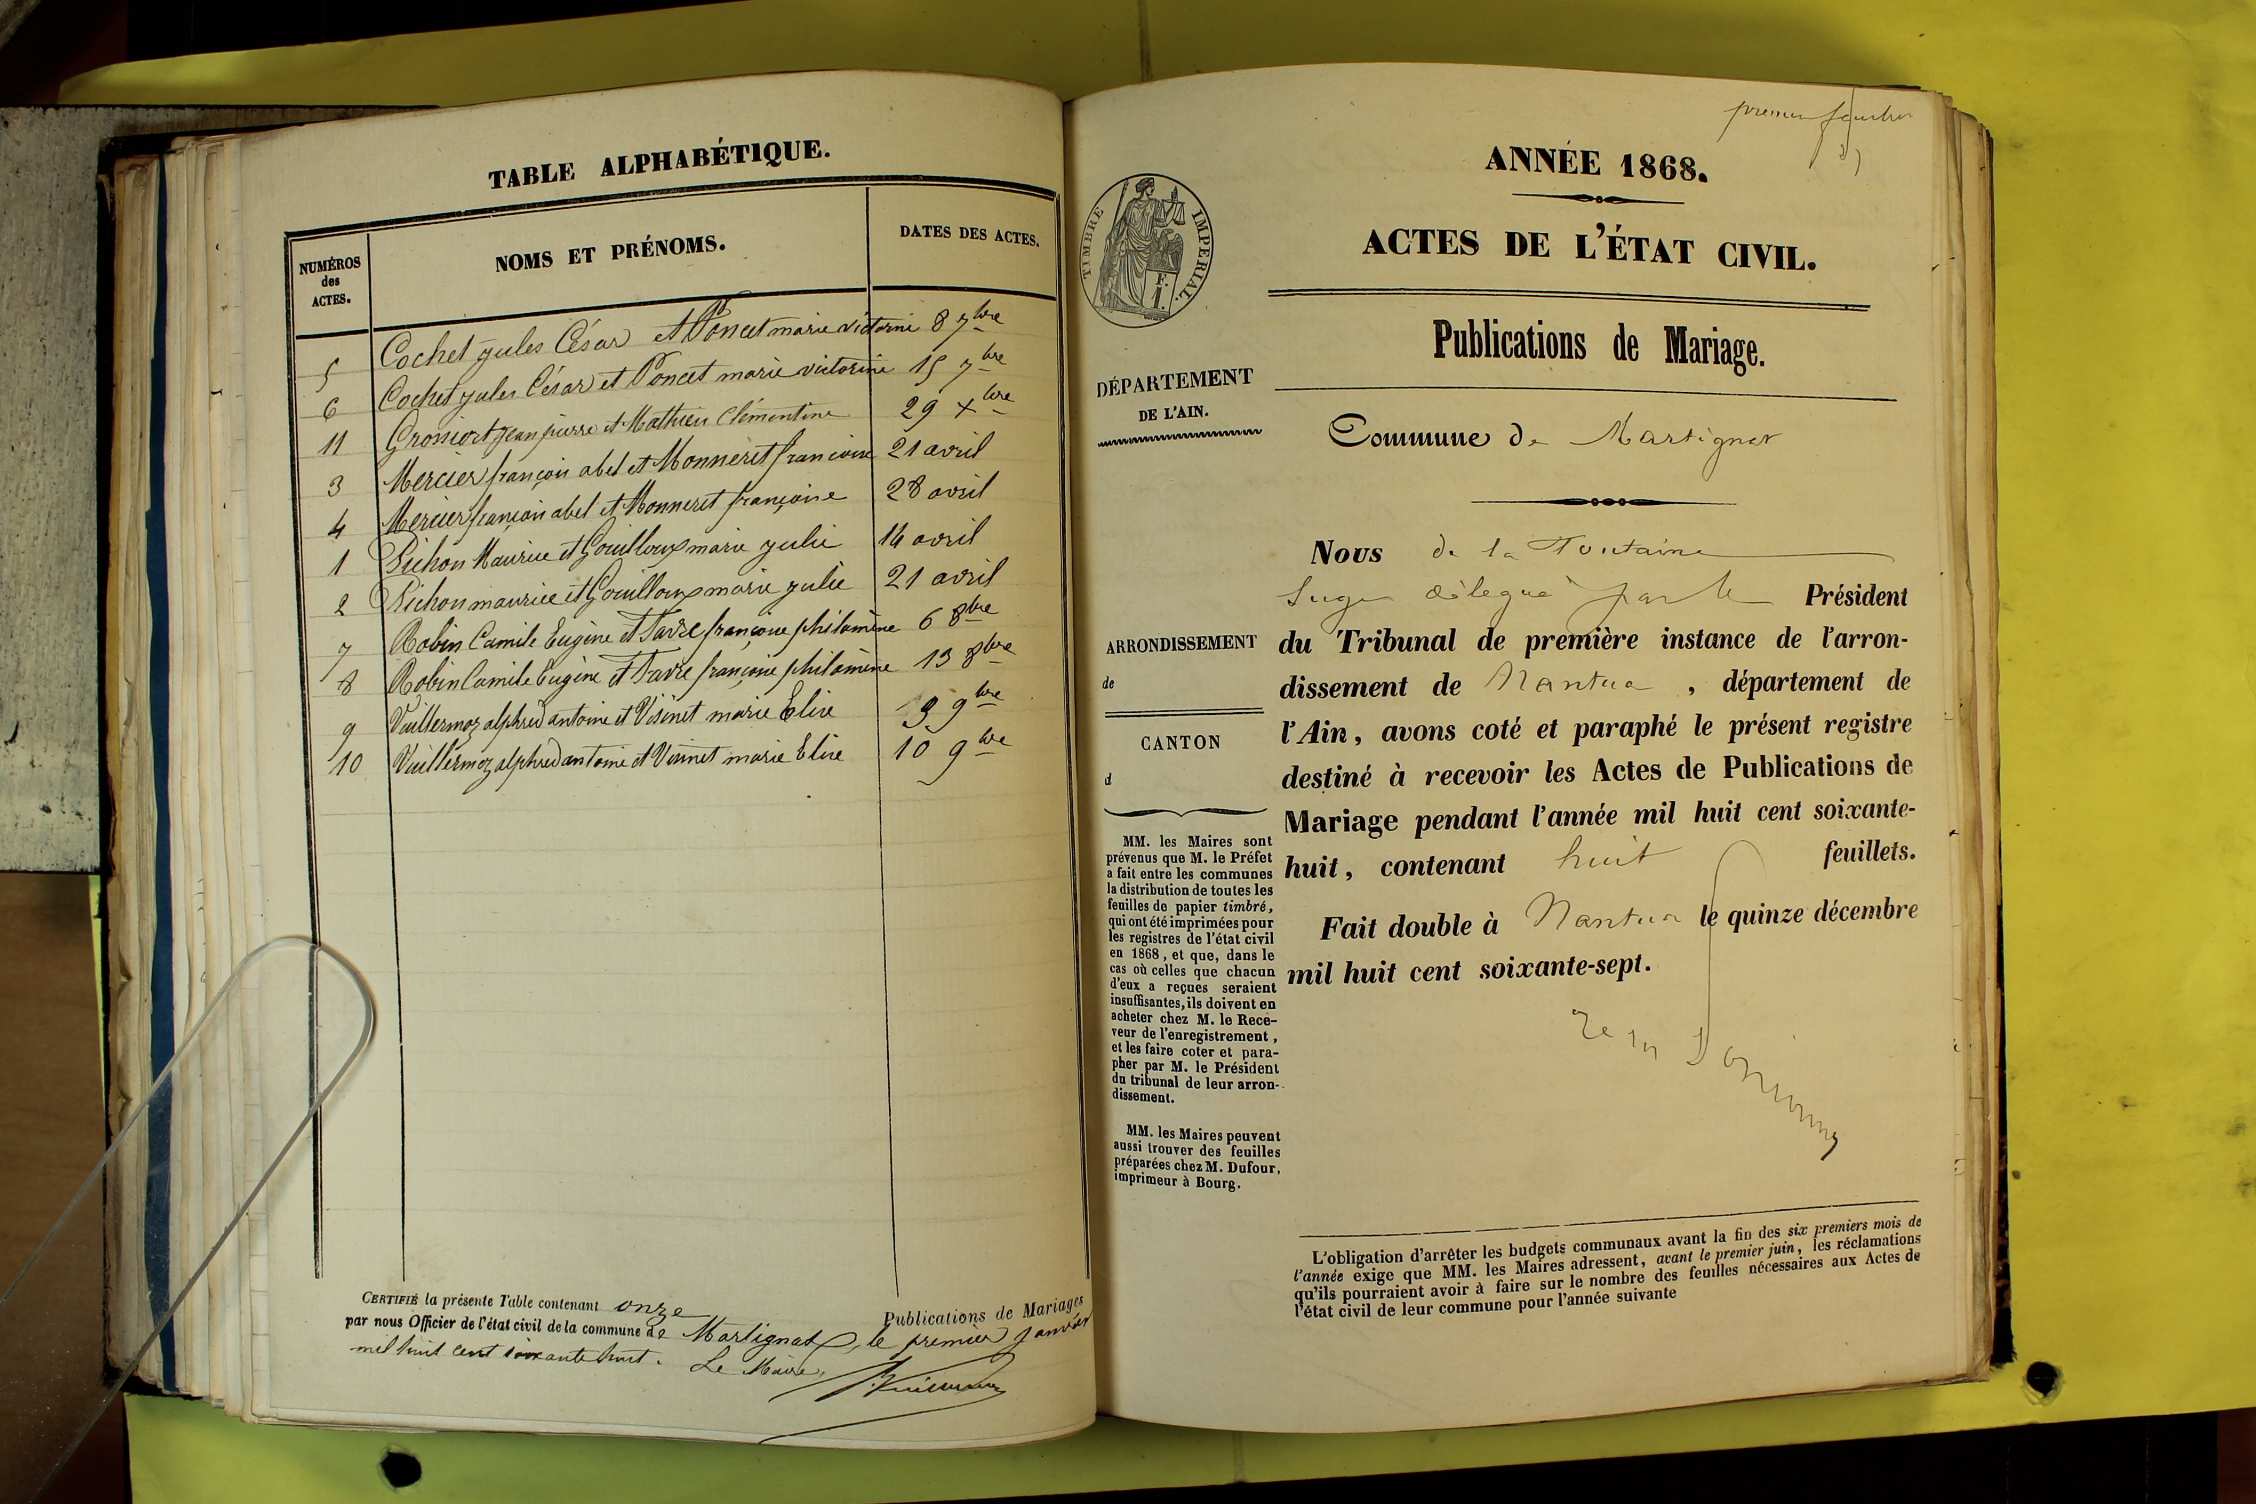 TABLE ALPHABÉTIQUE.
NUMÉROS des ACTES.
NOMS ET PRÉNOMS.
DATES DES ACTES.
5 Cochet jules César et Poncet marie victorine 8 7bre
6 Cochet jules César et Poncet marie victorine 15 7bre
11 jean pierre et Mathieu Clémentine 29 Xbre
3 Mercier françois abel et Monneret françoise 21 avril
4 Mercier françois abel et Monneret françoise 28 avril
1 Pichon Maurice et Gouilloux marie julie 14 avril
2 Pichon maurice et Gouilloux marie julie 21 avril
7 Robin Camile Eugène et Favre françoise philomène 6 8bre
8 Robin Camile Eugène et Favre françoise philomène 13 8bre
9 Vuillermoz alphred antoine et marie Elise 3 9bre
10 Vuillermoz alphred antoine et marie Elise 10 9bre
CERTIFIÉ la présente Table contenant onze Publications de Mariages
par nous Officier de l'état civil de la commune de Martignat, le premier janvier
mil huit cent soixante huit. Le Maire,
premier feuillet
ANNÉE 1868.
ACTES DE L'ÉTAT CIVIL.
TIMBRE IMPERIAL.
Publications de Mariage.
DÉPARTEMENT
DE L'AIN.
Commune de Martignat
ARRONDISSEMENT
de
CANTON
d
MM. les Maires sont
prévenus que M. le Préfet
a fait entre les communes
la distribution de toutes les
feuilles de papier timbré,
qui ont été imprimées pour
les registres de l'état civil
en 1868, et que, dans le
cas où celles que chacun
d'eux a reçues seraient
insuffisantes, ils doivent en
acheter chez M. le Rece-
veur de l'enregistrement,
et les faire coter et para-
pher par M. le Président
du tribunal de leur arron-
dissement.
MM. les Maires peuvent
aussi trouver des feuilles
préparées chez M. Dufour,
imprimeur à Bourg.
Nous de la
Juge délégué par le Président
du Tribunal de première instance de l'arron-
dissement de Nantua, département de
l'Ain, avons coté et paraphé le présent registre
destiné à recevoir les Actes de Publications de
Mariage pendant l'année mil huit cent soixante-
huit, contenant huit feuillets.
Fait double à Nantua le quinze décembre
mil huit cent soixante-sept.
L'obligation d'arrêter les budgets communaux avant la fin des six premiers mois de
l'année exige que MM. les Maires adressent, avant le premier juin, les réclamations
qu'ils pourraient avoir à faire sur le nombre des feuilles nécessaires aux Actes de
l'état civil de leur commune pour l'année suivante